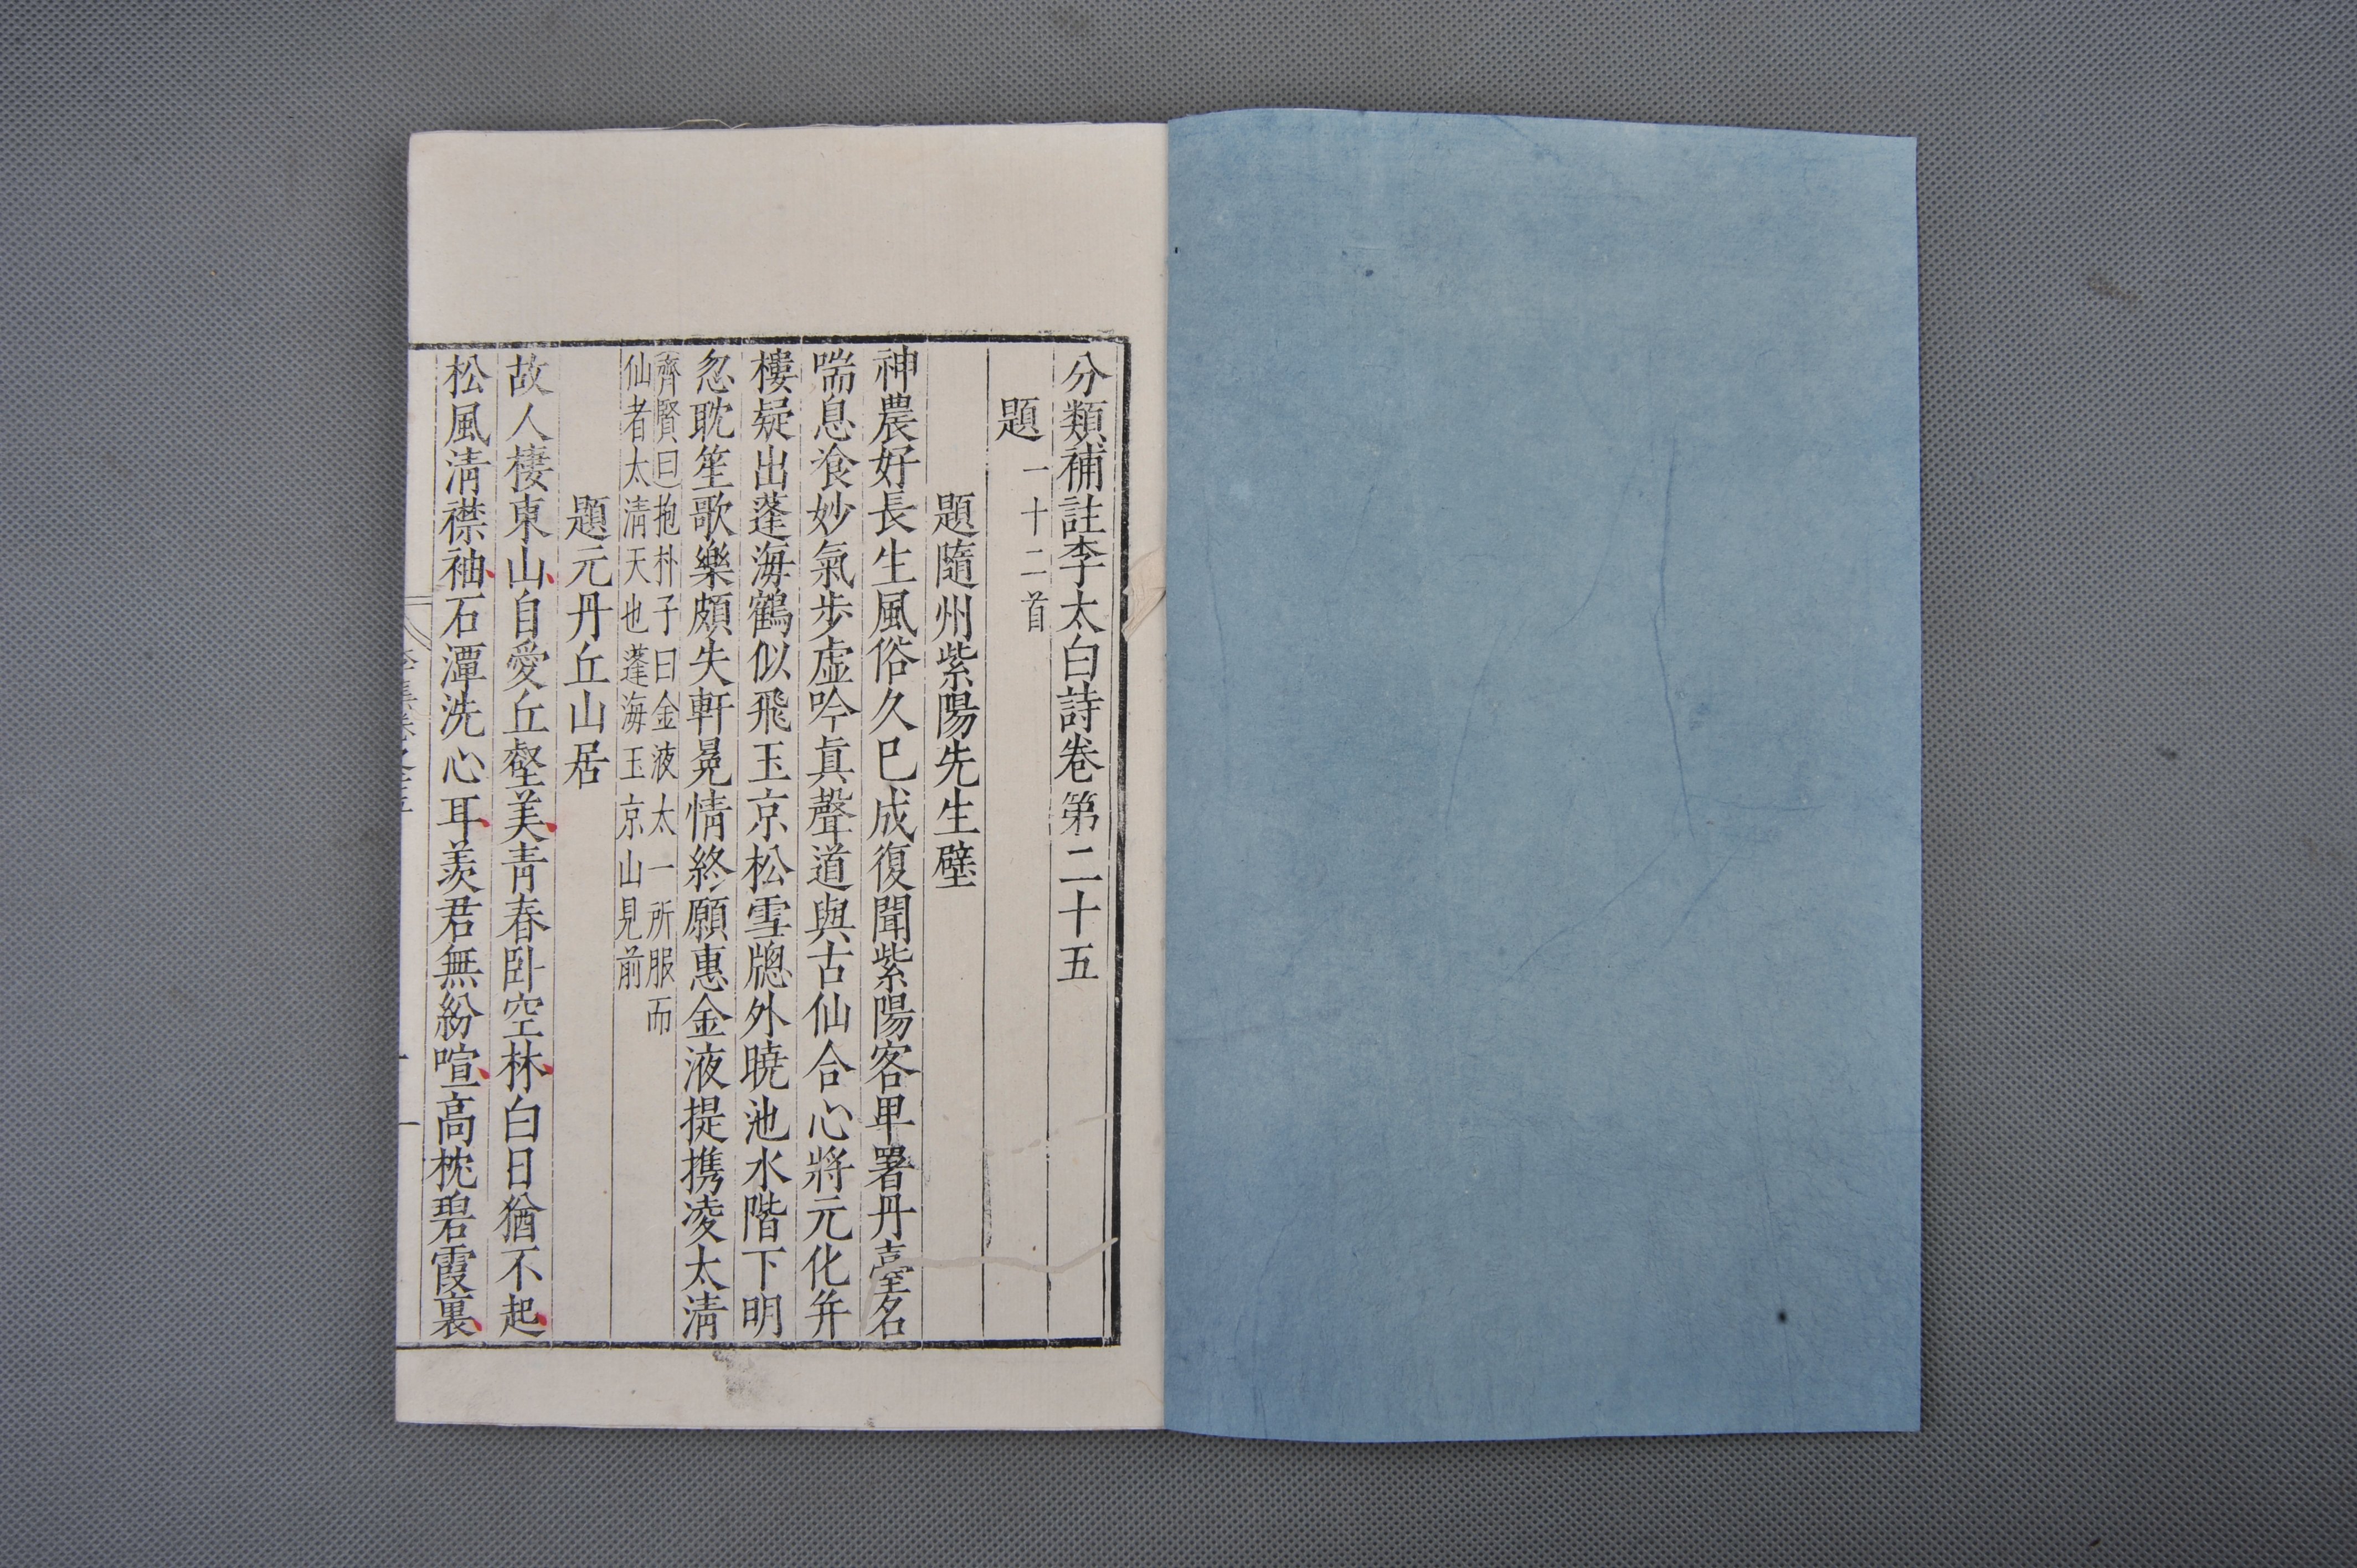 分類補註李太白詩卷第二十五
題一十二首
題隨州紫陽先生壁
神農好長生風俗久已成復聞紫陽客早署丹臺名
喘息飡妙氣步虛吟眞聲道與古仙合心將元化并
樓疑出蓬海鶴似飛玉京松雪牕外曉池水階下明
忽耽笙歌樂頗失軒冕情終願惠金液提携凌太清
齊賢曰抱朴子曰金液太一所服而
仙者太清天也蓬海玉京山見前
題元丹丘山居
故人棲東山自愛丘壑美青春卧空林白日猶不起
松風清襟袖石潭洗心耳羨君無紛喧高枕碧霞裏